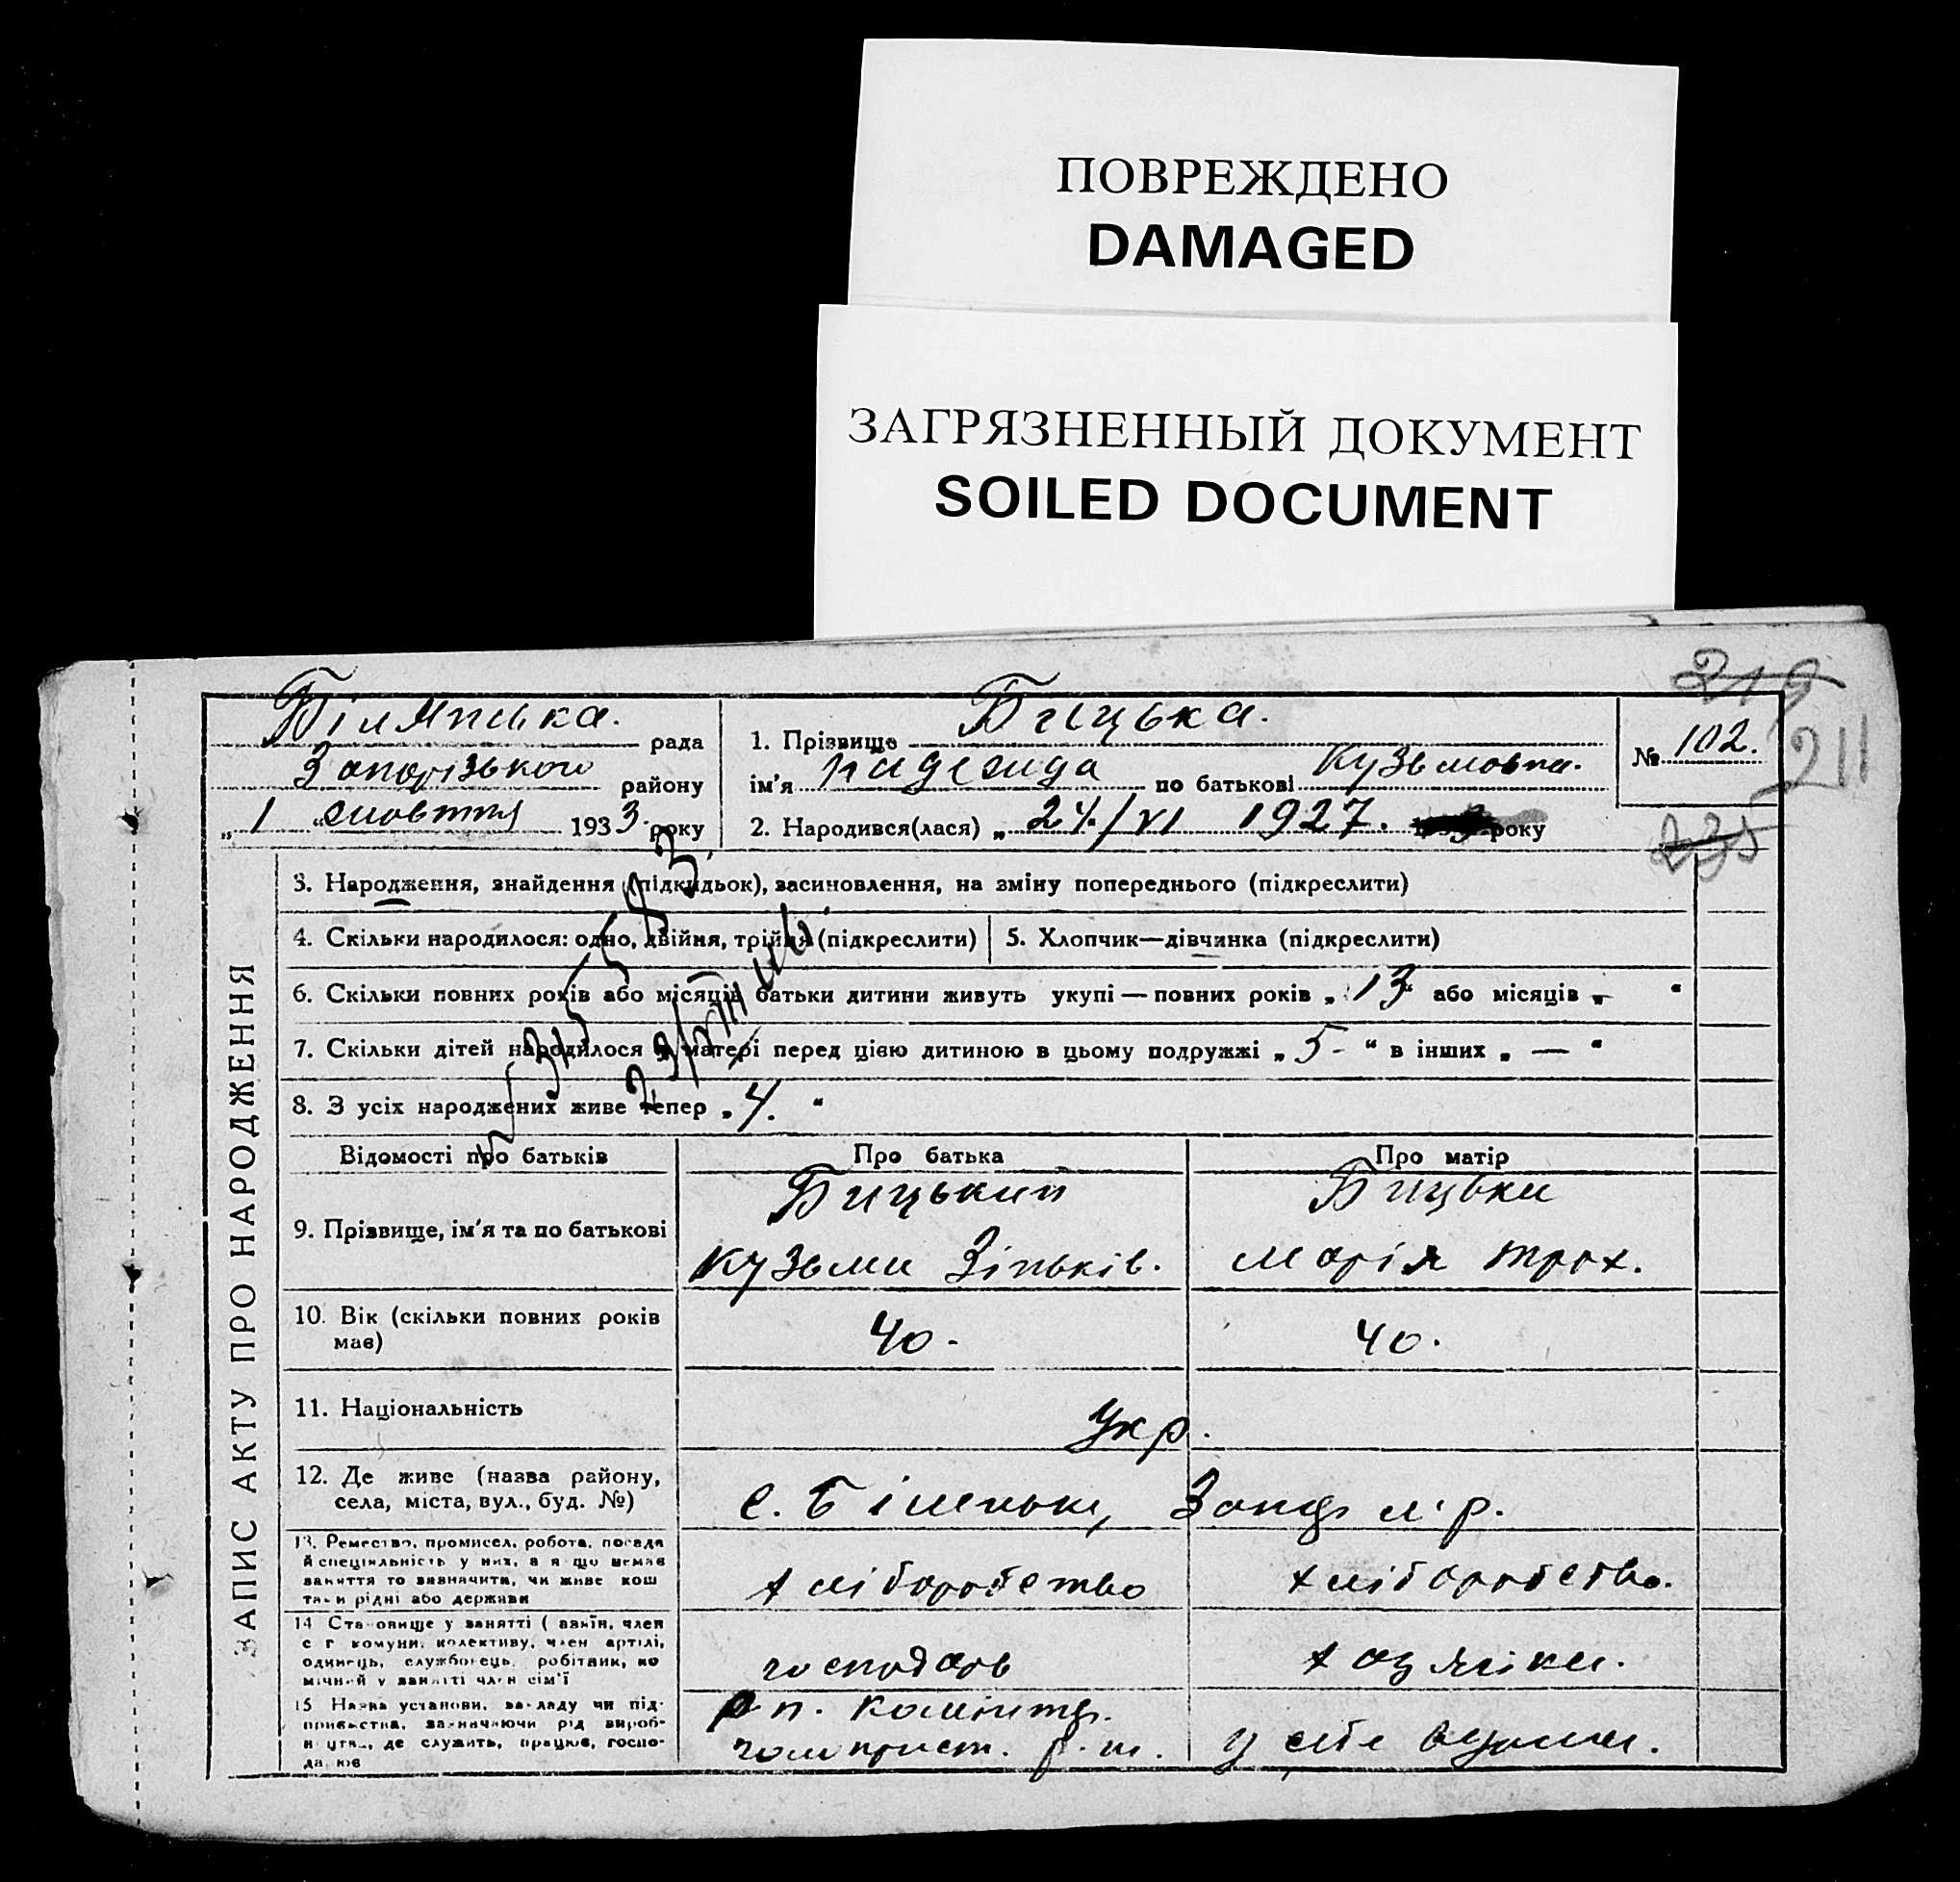 ПОВРЕЖДЕНО
DAMAGED
ЗАГРЯЗНЕННЫЙ ДОКУМЕНТ
SOILED DOCUMENT
219
211
235
ЗАПИС АКТУ ПРО НАРОДЖЕННЯ
Білянська. рада
Запорізького району
„ 1 " жовтня 1933 року
1. Прізвище Бицька.
ім'я Надежда по батькові Кузьмовна.
2. Народився(лася) „ 24/VI 1927. року
№ 102.
3. Народження, знайдення (підкидьок), засиновлення, на зміну попереднього (підкреслити)
4. Скільки народилося: одно, двійня, трійня (підкреслити)
5. Хлопчик—дівчинка (підкреслити)
6. Скільки повних років або місяців батьки дитини живуть укупі — повних років „ 13 " або місяців „ - "
7. Скільки дітей народилося у матері перед цією дитиною в цьому подружжі „ 5- " в інших „ — "
8. З усіх народжених живе тепер „ 4. "
Відомості про батьків
Про батька
Про матір
9. Прізвище, ім'я та по батькові
Бицький
Кузьма Зіньків.
Бицька
Марія Трох.
10. Вік (скільки повних років має)
40.
40.
11. Національність
Укр.
12. Де живе (назва району,
села, міста, вул., буд. №)
с. Біленьке, р.
13. Ремество, промисел, робота, посада
й спеціяльність у них, а якщо немає
заняття то зазначити, чи живе кош
тами рідні або держави
хліборобство
хліборобство.
14 Становище у занятті (хазяїн, член
с г комуни, колективу, член артілі,
одинець, службовець, робітник, по
мічний у занятті член сім'ї
господарь
хазяйка.
15 Назва установи, закладу чи під-
приємства, зазначаючи рід вироб-
ництва, де служить, працює, госпо-
дарює
у себе вдома.